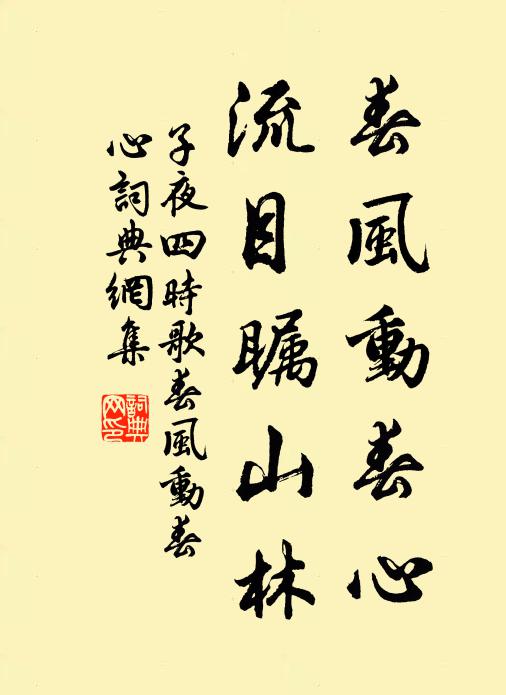 春風動春心
流目瞩山林
子夜四時歌春風動春
心詞典網集
詞典网印